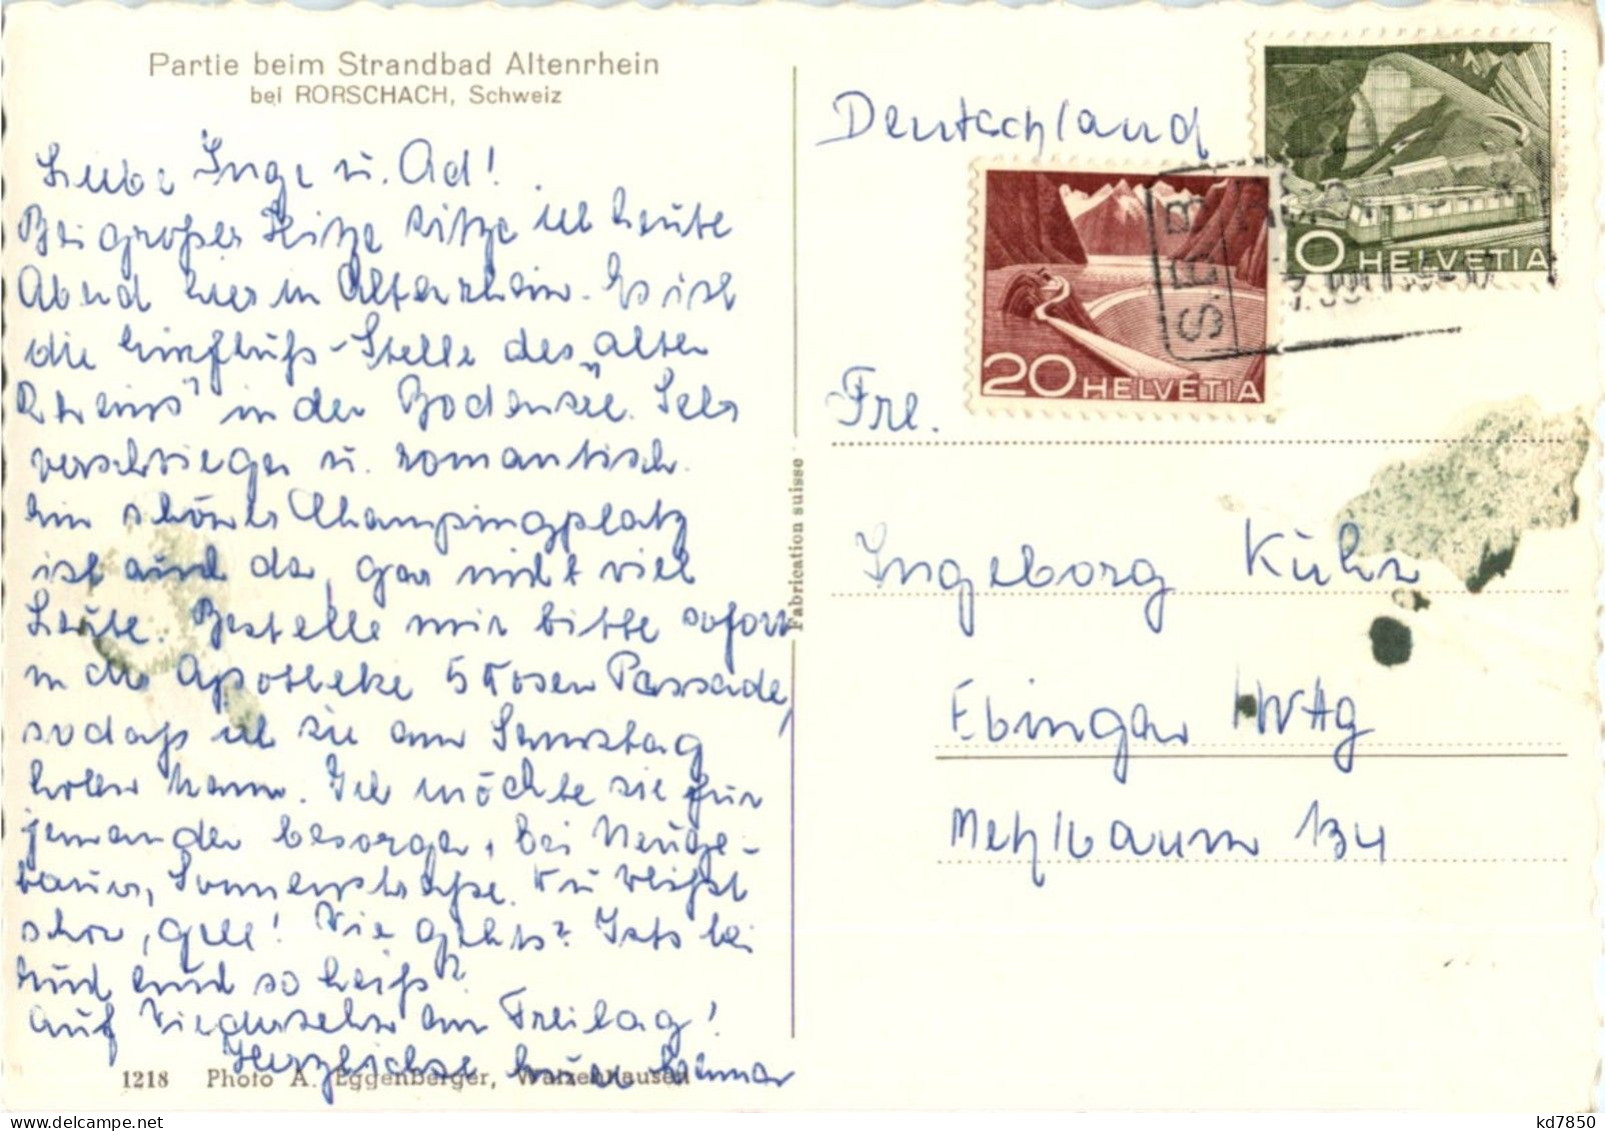 Partie beim Strandbad Altenrhein
bei RORSCHACH, Schweiz
Liebe Inge u. Ad!
Bei großer Hitze sitze ich heute
Abend hier in Altenrhein. Es ist
die Einfluß-Stelle des "alten
Rheins" in den Bodensee. Sehr
verschwiegen u. romantisch.
Ein schöner Champingplatz
ist auch da, gar nicht viel
Leute. Bestelle mir bitte sofort
in der Apotheke 5 Dosen
sodaß ich sie am Samstag
holen kann. Ich möchte sie für
jemanden besorgen, bei Neuge-
bauer, Sonnenstraße. Du weißt
schon, gell! Wie gehts? Ists bei
Euch auch so heiß?
Auf Wiedersehen am Freitag!
Herzlichst
1218 Photo A. Eggenberger, Walzenhausen
Fabrication suisse
Deutschland
20 HELVETIA
HELVETIA
S.B.B
Frl.
Ingeborg
Ebingen
134
kd7850